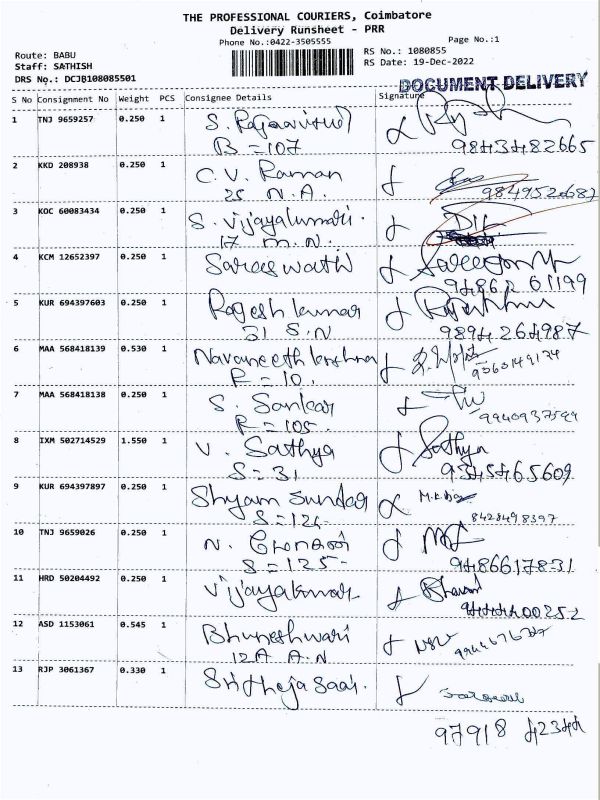 THE PROFESSIONAL COURIERS, Coimbatore
Delivery Runsheet - PRR
Phone No.:0422-3505555
Page No.:1
Route: BABU
RS No.: 1080855
Staff: SATHISH
RS Date: 19-Dec-2022
DRS No.: DCJB108085501
DOCUMENT DELIVERY
S No Consignment No Weight PCS Consignee Details Signature
1 TNJ 9659257 0.250 1 S.
B = 107 9843482665
2 KKD 208938 0.250 1 C.V. Raman
25 N.A. 984952687
3 KOC 60083434 0.250 1 S. Vijayakumari.
17 M.N.
4 KCM 12652397 0.250 1 Saraswathi
94862 61199
5 KUR 694397603 0.250 1 Rajesh kumar
31 S.N 9894264987
6 MAA 568418139 0.530 1 Navaneeth krishna
R = 10.
7 MAA 568418138 0.250 1 S. Sankar
R = 105.
8 IXM 502714529 1.550 1 V. Sathya Sathya
S = 31 9545465609
9 KUR 694397897 0.250 1 Shyam Sundar
8428498397
10 TNJ 9659026 0.250 1 N.
S = 125- 9486617831
11 HRD 50204492 0.250 1 Vijayakumar
9444400252
12 ASD 1153061 0.545 1 Bhuneshwari
12A A.N
13 RJP 3061367 0.330 1 Sritheja Saai.
97918 42344